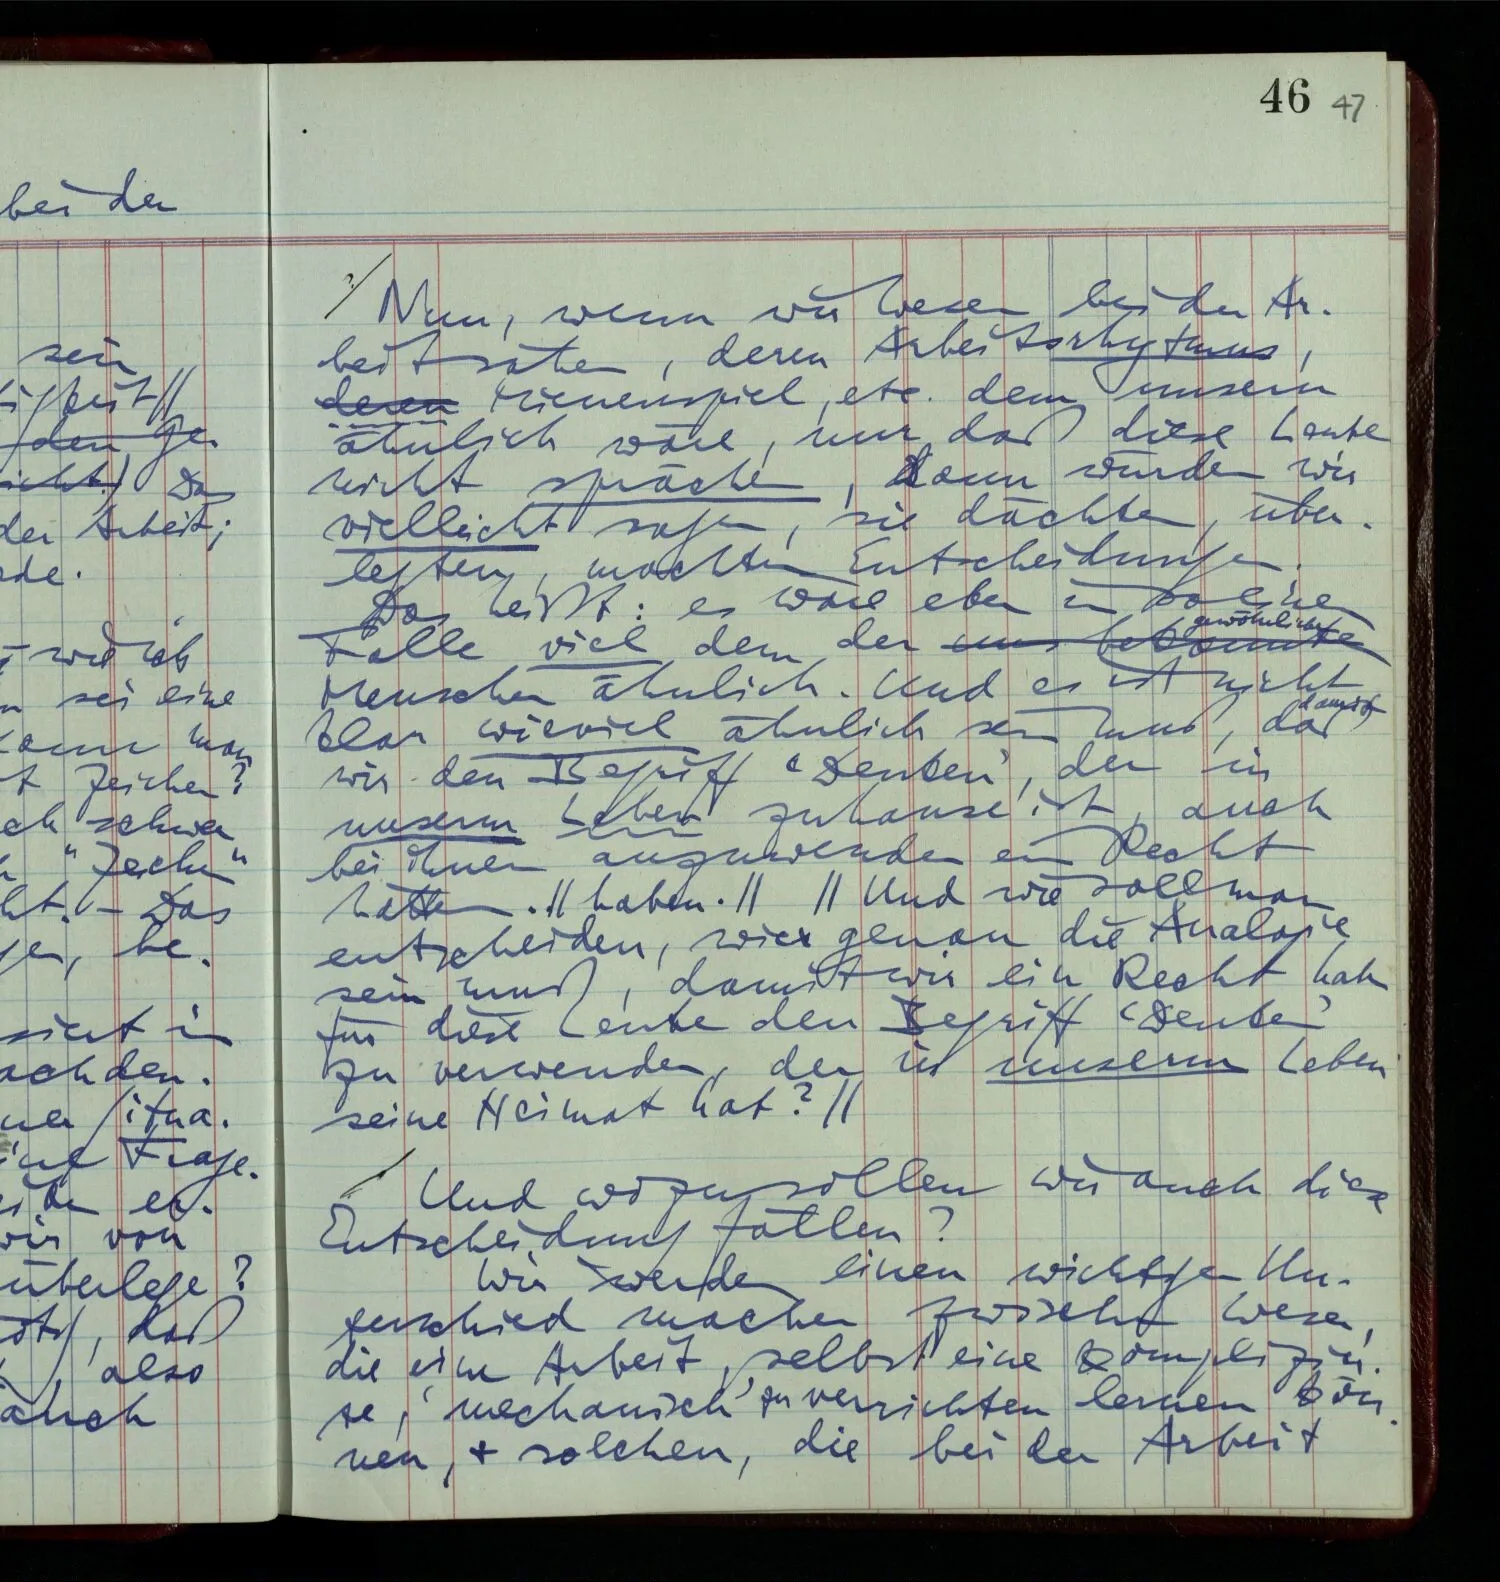 46 47
bei der
sein
den Ge-
nicht.) Das
der Arbeit;
sei eine
kann man
Zeichen?
schwer
"Zeichen"
Das
be-
nicht in
Situa-
Frage.
er-
wir von
überlege?
daß
also
/ Nun, wenn wir Wesen bei der Ar-
beit sähen, deren Arbeitsrhytmus,
deren Mienenspiel, etc. dem unsern
ähnlich wäre, nur daß diese Leute
nicht sprächen, dann würden wir
vielleicht sagen, sie dächten, über-
legten, machten Entscheidungen.
Das heißt: es wäre eben in so einem
Falle viel dem der uns bekannte gewöhnlichen
Menschen ähnlich. Und es ist nicht
klar wieviel ähnlich sein muß, daß damit
wir den Begriff 'Denken', der in
unserm Leben zuhause ist, auch
bei ihnen anzuwenden ein Recht
hätten. // haben. // // Und wie soll man
entscheiden, wie genau die Analogie
sein muß, damit wir ein Recht haben
für diese Leute den Begriff 'Denken'
zu verwenden, der in unserm Leben
seine Heimat hat? //
/ Und wozu sollen wir auch diese
Entscheidung fällen?
Wir werden einen wichtigen Un-
terschied machen zwischen Wesen,
die eine Arbeit, selbst eine komplizier-
te, 'mechanisch' zu verrichten lernen kön-
nen, + solchen, die bei der Arbeit